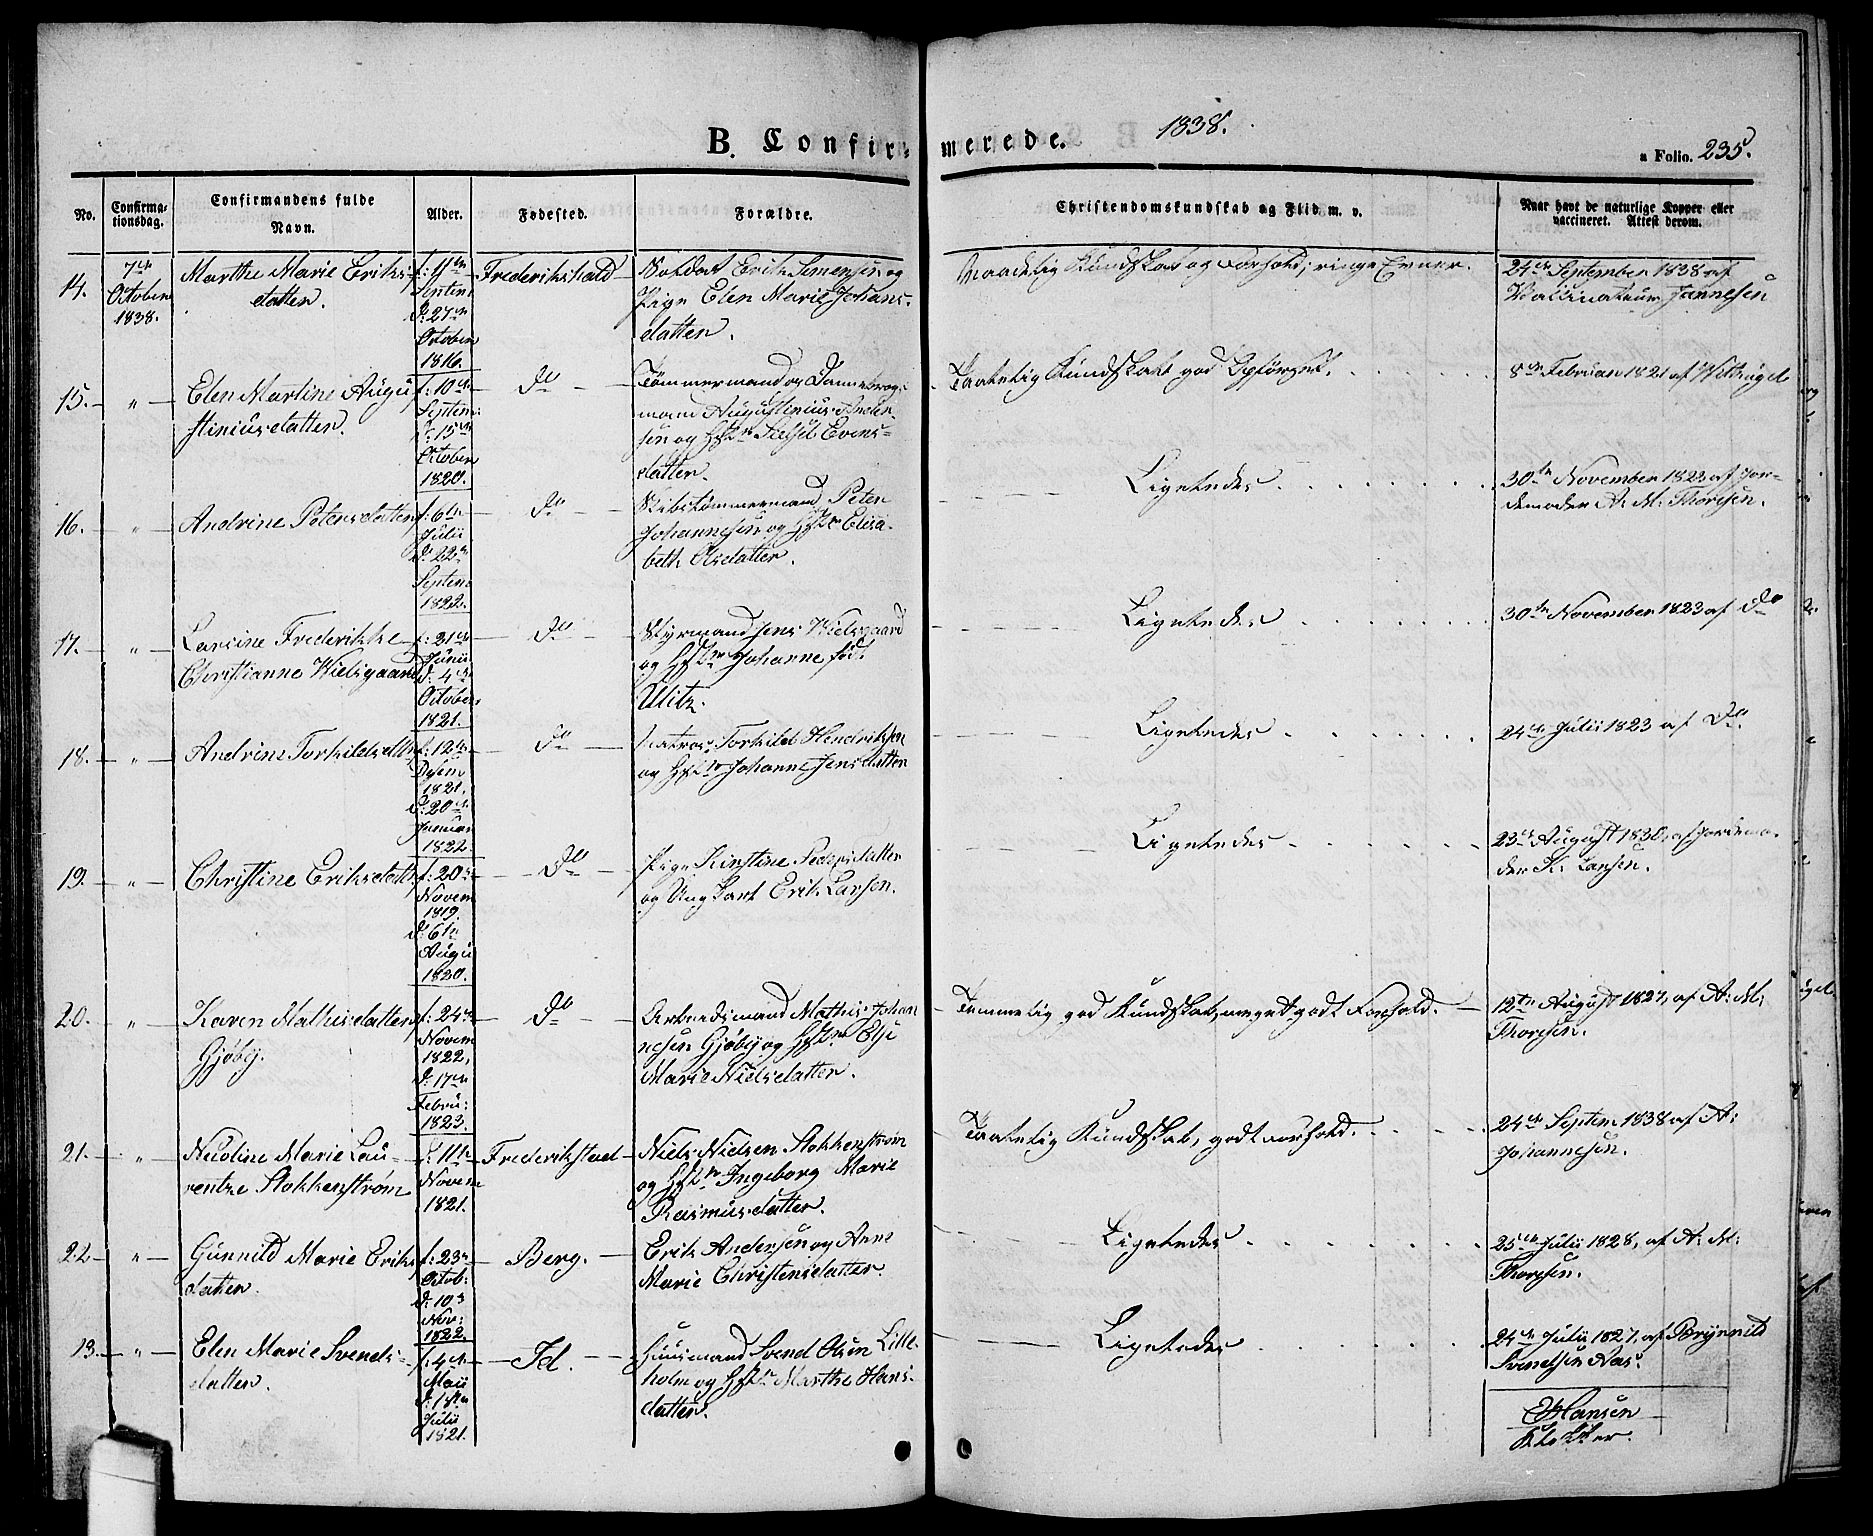 B. Confir-
merede.
1838.
a Folio. 235.
No.
Confirma-
tionsdag.
Confirmandens fulde
Navn.
Alder.
Fødested.
Forældre.
Christendomskundskab og Flid m. v.
Naar havt de naturlige Kopper eller
vaccineret. Attest derom.
14.
7de
October
1838.
Marthe Marie Eriks-
datter.
f: 11te
Septem
d: 27de
October
1816.
Frederikshald
Soldat Erik Simensen og
Pige Elen Marie Johans-
datter.
Maadelig Kundskab og Forhold; ringe Evner.
24de September 1838 af
Vaccinateur Jannesen
15.
"
Elen Martine Augu
stiniusdatter.
f: 10de
Septem:
d: 15de
October
1820.
do
Tømmermand og Dannebrogs-
mand Augustinius Ander-
sen og Hstr Sidsel Evens-
datter.
Taalelig Kundskab god Opførsel.
8de Februar 1821 af Wettergel
16.
"
Andrine Petersdatter
f: 6te
Julii
d: 22de
Septem
1822.
do
Skibstømmermand Peter
Johannesen og Hstr Elisa-
beth Olsdatter.
Ligeledes
30te November 1823 af Jor-
demoder A. M. Thoresen.
17.
"
Larsine Frederikke
Christianne Wielsgaard
f: 21de
Junii
d: 4de
October
1821.
do
Styrmand Jens Wielsgaard
og Hstr Johanne fød.
Ulitz.
Ligeledes
30te November 1823 af do
18.
"
Andrine Torkildsdttr
f: 12te
Desem
1821.
d: 20de
Januar
1822
do
Matros Torkild Hendriksen
og Hstr Johanne Jensdatter
Ligeledes
24de Julii 1823 af do.
19.
"
Christine Eriksdattr
f: 20de
Novem
1819.
d: 6te
Augu
1820.
do
Pige Kirstine Pedersdatter
og Ungkarl Erik Larsen.
Ligeledes
23de August 1830, af Jordemo-
der K. Larsen.
20.
"
Karen Mathisdatter
Gjøby.
f: 24de
Novem
1822,
d: 17de
Febru:
1823.
do
Arbeidsmand Mathis Johan
nesen Gjøby og Hstr Elje
Marie Nielsdatter.
Temmelig god Kundskab, meget godt Forhold.
12te August 1827, af A: M:
Thoresen.
21.
"
Nicoline Marie Lau-
rentze Stokkenstrøm
f: 11te
Novem
1821.
Frederikstad
Niels Nielsen Stokkenstrøm
og Hstr Ingeborg Marie
Rasmusdatter.
Taalelig Kundskab, godt Forhold.
24de Septem 1838 af A:
Johannesen.
22
"
Gunnild Marie Eriks
datter.
f: 23de
Octob:
d: 10de
Nov:
1822.
Berg.
Erik Andersen og Anne
Marie Christensdatter.
Ligeledes
25de Julii 1828, af A: M:
Thoresen.
13.
"
Elen Marie Svends-
datter.
f: 4de
Maii
d: 1ste
Julii
1821.
Id.
Huusmand Svend Olsen Lille-
holm og Hstr Marthe Hans-
datter.
Ligeledes
24de Julii 1827, af Brynnild
Svendsen Næs.
E Hansen
Klokker.